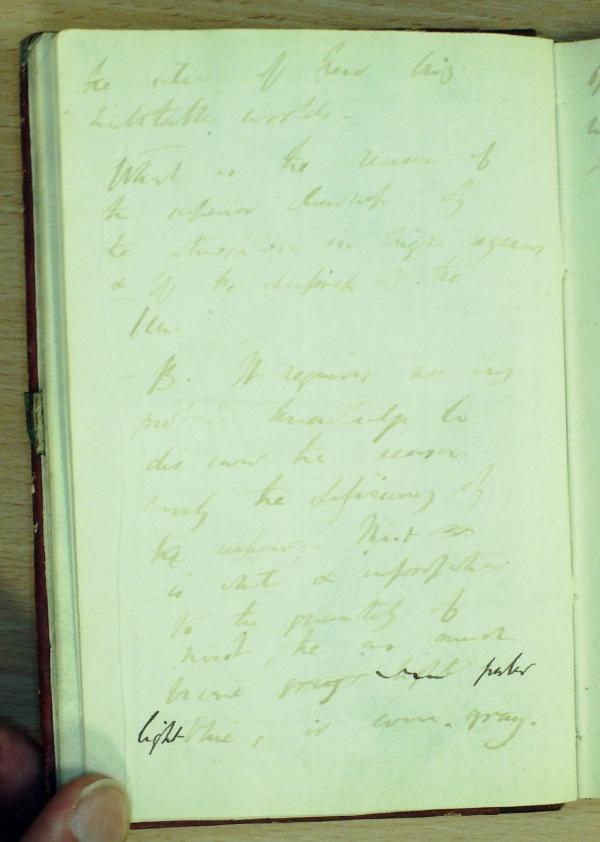 the idea of how big
habitable worlds -
What is the reason of
the superior clearness of
the atmosphere in high regions
& of the deepness of the
- B. It requires no very
knowledge to
discover the reason
the deficiency of
the vapour. Mist
is white & in proportion
to the quantity of
mist, the air must
light paler
light blue, or even gray.